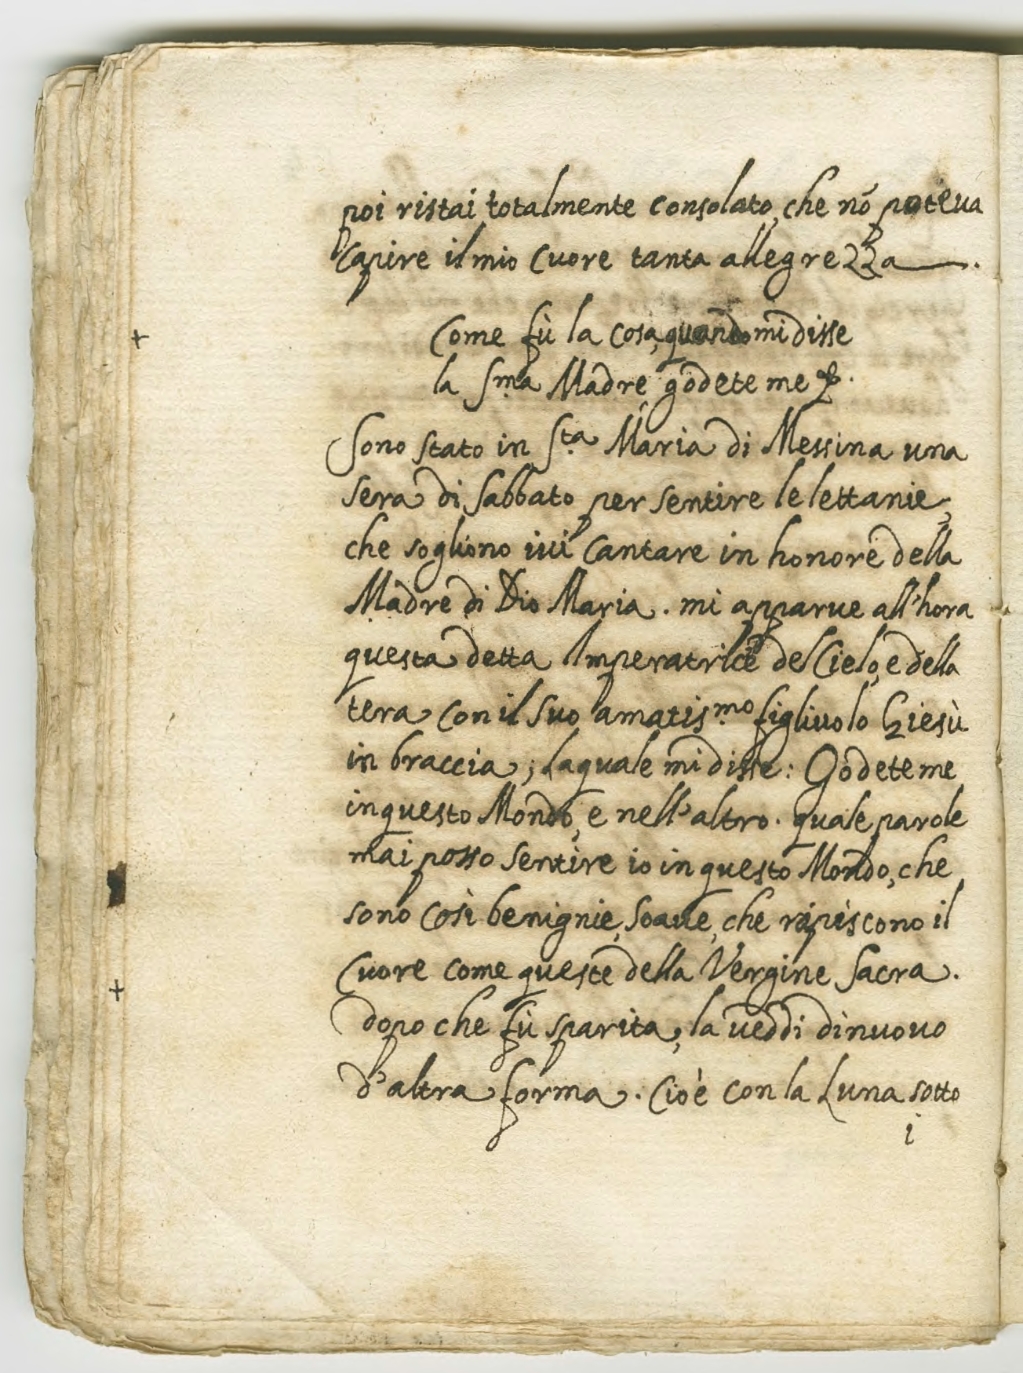 poi ristai totalmente consolato, che nõ poteua
Capire il mio Cuore tanta allegrezza.
Come fù la cosa, quando mi disse
la Sma Madre, godete me &.
Sono stato in Sta Maria di Messina una
sera di Sabbato per sentire le lettanie,
che sogliono iui Cantare in honore della
Madre di Dio Maria. mi apparue all'hora
questa detta Imperatrice del Cielo, e della
tera con il suo amatismo figliuolo Giesù
in braccia; laquale mi disse: Godete me
in questo Mondo, e nell'altro. quale parole
mai posso sentire io in questo Mondo, che
sono Così benignie, Soaue, che rapiscono il
Cuore come queste della Vergine Sacra.
dopo che fù sparita, la ueddi dinuouo
d'altra forma. Cioè con la Luna sotto
i
+
+